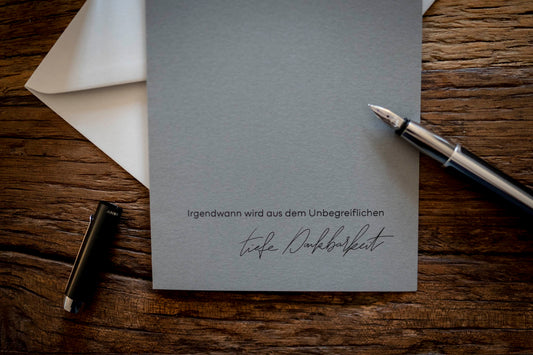 Irgendwann wird aus dem Unbegreiflichen
tiefe Dankbarkeit